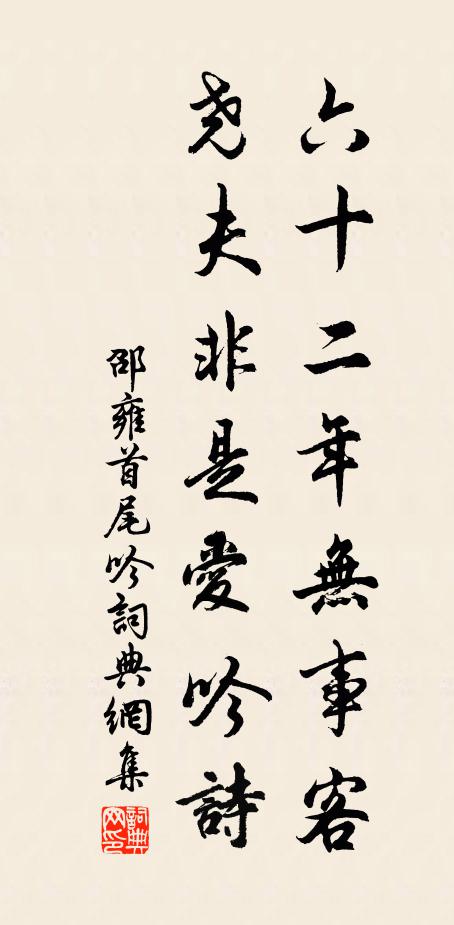 六十二年無事客
堯夫非是愛吟詩
邵雍首尾吟詞典網集
詞典网印